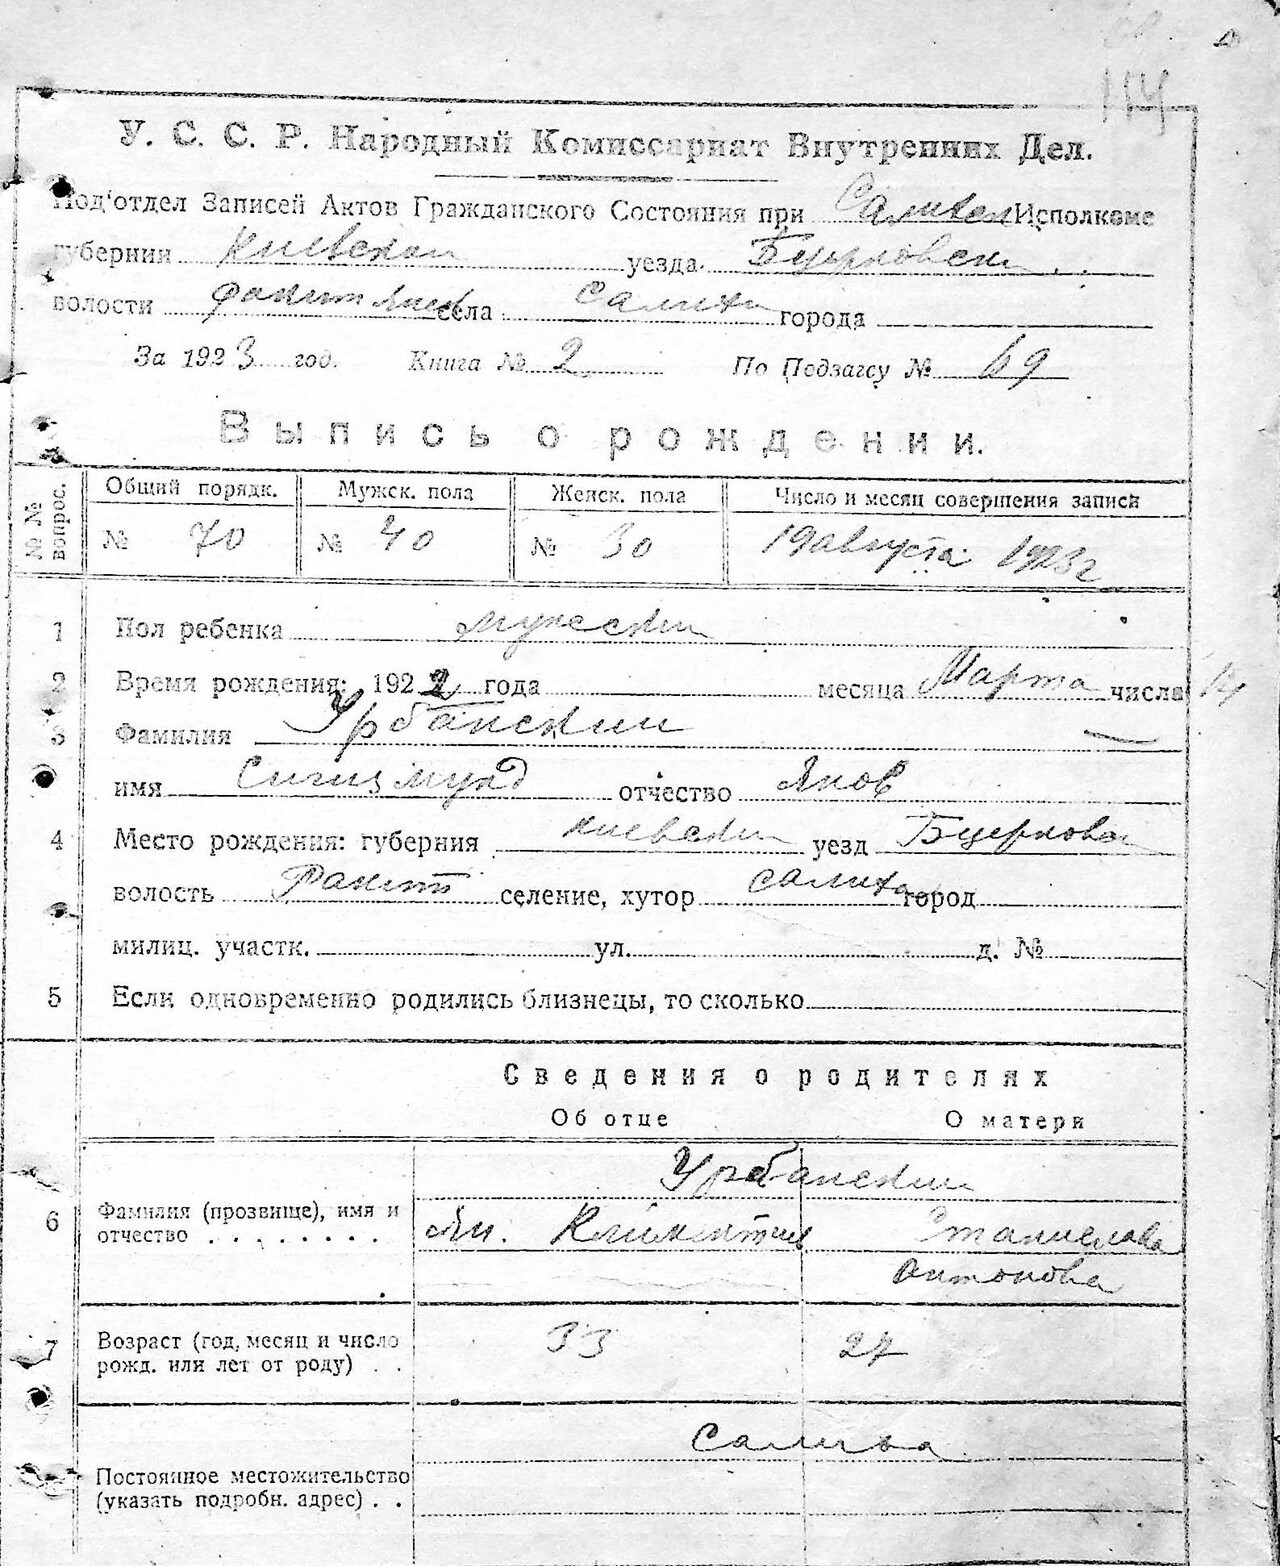 114
У. С. С. Р. Народный Комиссариат Внутренних Дел.
Под'отдел Записей Актов Гражданского Состояния при Исполкоме
губернии Киевской уезда Бцерковски
волости села Салиха города
За 1923 год. Книга № 2 По Подзагсу № 69
Выпись о рождении.
№ № вопрос. Общий порядк. Мужск. пола Женск. пола Число и месяц совершения записи
№ 70 № 40 № 30 19 августа 1923 г
1 Пол ребенка мужеский
2 Время рождения: 1922 года месяца Марта числа 14
3 Фамилия Урбанский
имя Сигизмунд отчество Янов
4 Место рождения: губерния Киевский уезд Бцерковск
волость Ракит селение, хутор Салиха город
милиц. участк. ул. д. №
5 Если одновременно родились близнецы, то сколько
Сведения о родителях
Об отце О матери
Урбанский
6 Фамилия (прозвище), имя и отчество . . . . . . . . Ян. Климентиев Станислава
Антонова
7 Возраст (год, месяц и число рожд. или лет от роду) . . 33 27
Салиха
Постоянное местожительство
(указать подробн. адрес) . .